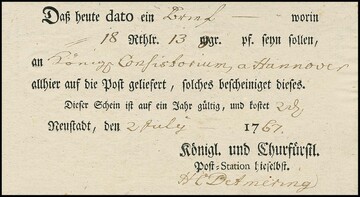 Daß heute dato ein Brief — worin
18 Rthlr. 13 mgr. pf. seyn sollen,
an Königl. Consistorium, a Hannover
allhier auf die Post geliefert, solches bescheiniget dieses.
Dieser Schein ist auf ein Jahr gültig, und kostet 2
Neustadt, den 2 July 1767.
Königl. und Churfürstl.
Post-Station hieselbst.